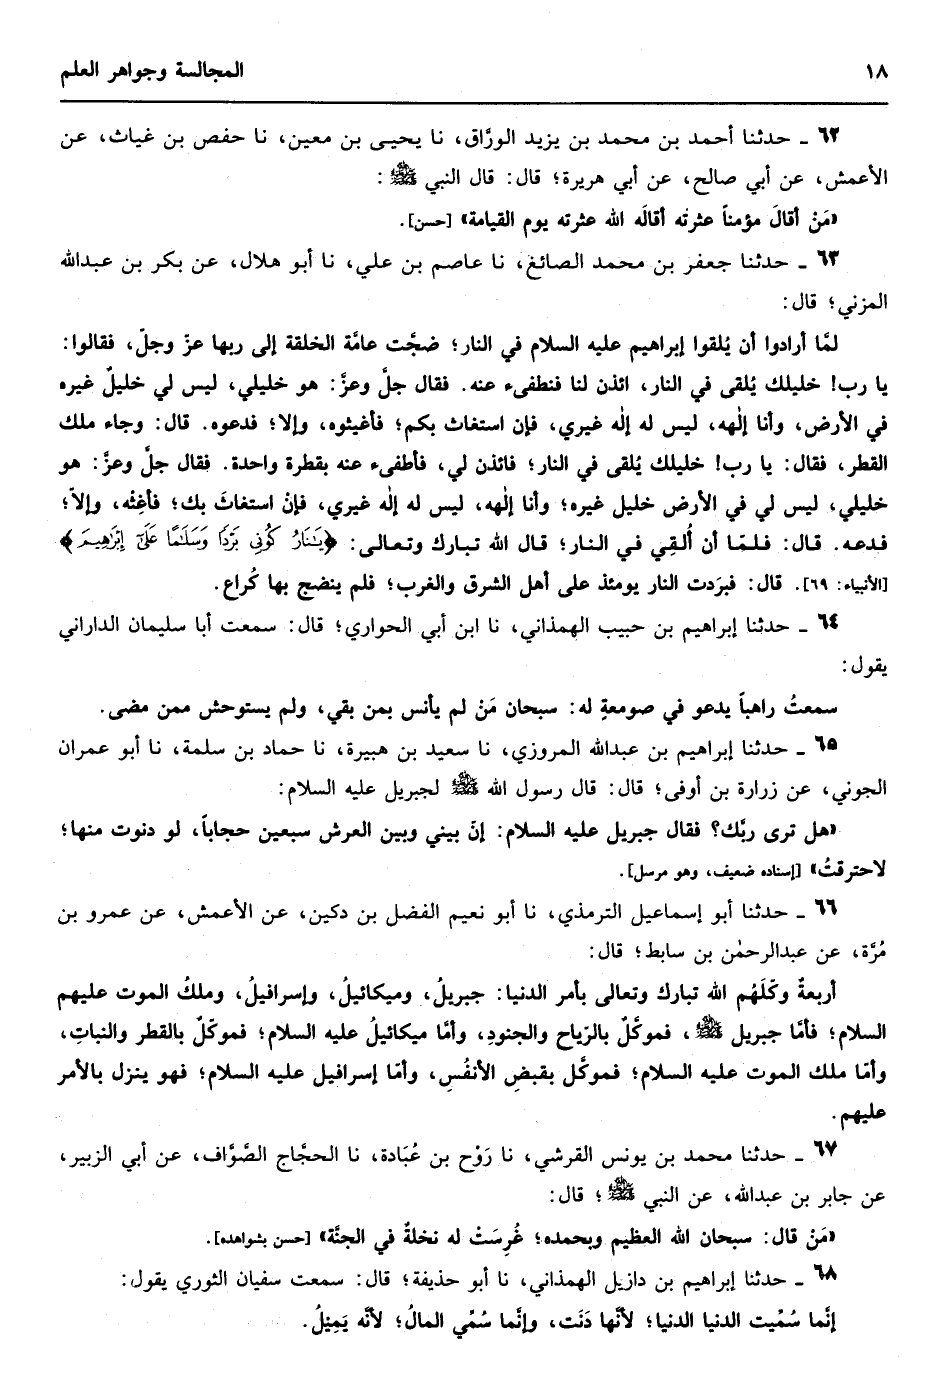 ١٨ المجالسة وجواهر العلم
٦٢ ـ حدثنا أحمد بن محمد بن يزيد الورَّاق، نا يحيى بن معين، نا حفص بن غياث، عن
الأعمش، عن أبي صالح، عن أبي هريرة؛ قال: قال النبي ﷺ:
«مَنْ أقالَ مؤمناً عثرتُه أقالَه الله عثرته يوم القيامة» [حسن].
٦٣ ـ حدثنا جعفر بن محمد الصائغ، نا عاصم بن علي، نا أبو هلال، عن بكر بن عبدالله
المزني؛ قال:
لمَّا أرادوا أن يُلقوا إبراهيم عليه السلام في النار؛ ضجَّت عامَّة الخلقة إلى ربها عزّ وجلّ، فقالوا:
يا رب! خليلك يُلقى في النار، ائذن لنا فنطفىء عنه. فقال جلَّ وعزَّ: هو خليلي، ليس لي خليلٌ غيره
في الأرض، وأنا إلٰهه، ليس له إلٰه غيري، فإن استغاث بكم؛ فأغيثوه، وإلا؛ فدعوه. قال: وجاء ملك
القطر، فقال: يا رب! خليلك يُلقى في النار؛ فائذن لي، فأطفىء عنه بقطرة واحدة. فقال جلَّ وعزَّ: هو
خليلي، ليس لي في الأرض خليل غيره؛ وأنا إلٰهه، ليس له إلٰه غيري، فإنْ استغاثَ بك؛ فأغِثْه، وإلاّ؛
فدعه. قال: فلمّا أن أُلقِي في النار؛ قال الله تبارك وتعالى: ﴿يَٰنَارُ كُونِى بَرْدًا وَسَلَٰمًا عَلَىٰٓ إِبْرَٰهِيمَ﴾
[الأنبياء: ٦٩]. قال: فبرَدت النار يومئذ على أهل الشرق والغرب؛ فلم ينضج بها كُراع.
٦٤ ـ حدثنا إبراهيم بن حبيب الهمذاني، نا ابن أبي الحواري؛ قال: سمعت أبا سليمان الداراني
يقول:
سمعتُ راهباً يدعو في صومعةٍ له: سبحان مَنْ لم يأنس بمن بقي، ولم يستوحش ممن مضى.
٦٥ ـ حدثنا إبراهيم بن عبدالله المروزي، نا سعيد بن هبيرة، نا حماد بن سلمة، نا أبو عمران
الجوني، عن زرارة بن أوفى؛ قال: قال رسول الله ﷺ لجبريل عليه السلام:
«هل ترى ربَّك؟ فقال جبريل عليه السلام: إنّ بيني وبين العرش سبعين حجاباً، لو دنوت منها؛
لاحترقتُ» [إسناده ضعيف، وهو مرسل].
٦٦ ـ حدثنا أبو إسماعيل الترمذي، نا أبو نعيم الفضل بن دكين، عن الأعمش، عن عمرو بن
مُرَّة، عن عبدالرحمٰن بن سابط؛ قال:
أربعةٌ وكّلَهُم الله تبارك وتعالى بأمر الدنيا: جبريلُ، وميكائيلُ، وإسرافيلُ، وملكُ الموت عليهم
السلام؛ فأمَّا جبريل ﷺ، فموكَّلٌ بالرِّياح والجنودِ، وأمَّا ميكائيلُ عليه السلام؛ فموكّلٌ بالقطر والنباتِ،
وأمّا ملك الموت عليه السلام؛ فموكَّل بقبضِ الأنفُسِ، وأمّا إسرافيل عليه السلام؛ فهو ينزل بالأمر
عليهم.
٦٧ ـ حدثنا محمد بن يونس القرشي، نا رَوْح بن عُبَادة، نا الحجَّاج الصَّوَّاف، عن أبي الزبير،
عن جابر بن عبدالله، عن النبي ﷺ؛ قال:
«مَنْ قال: سبحان الله العظيم وبحمده؛ غُرِسَتْ له نخلةٌ في الجنَّة» [حسن بشواهده].
٦٨ ـ حدثنا إبراهيم بن دازيل الهمذاني، نا أبو حذيفة؛ قال: سمعت سفيان الثوري يقول:
إنَّما سُمِّيت الدنيا الدنيا؛ لأنَّها دَنَت، وإنَّما سُمِّي المالُ؛ لأنَّه يَمِيْلُ.